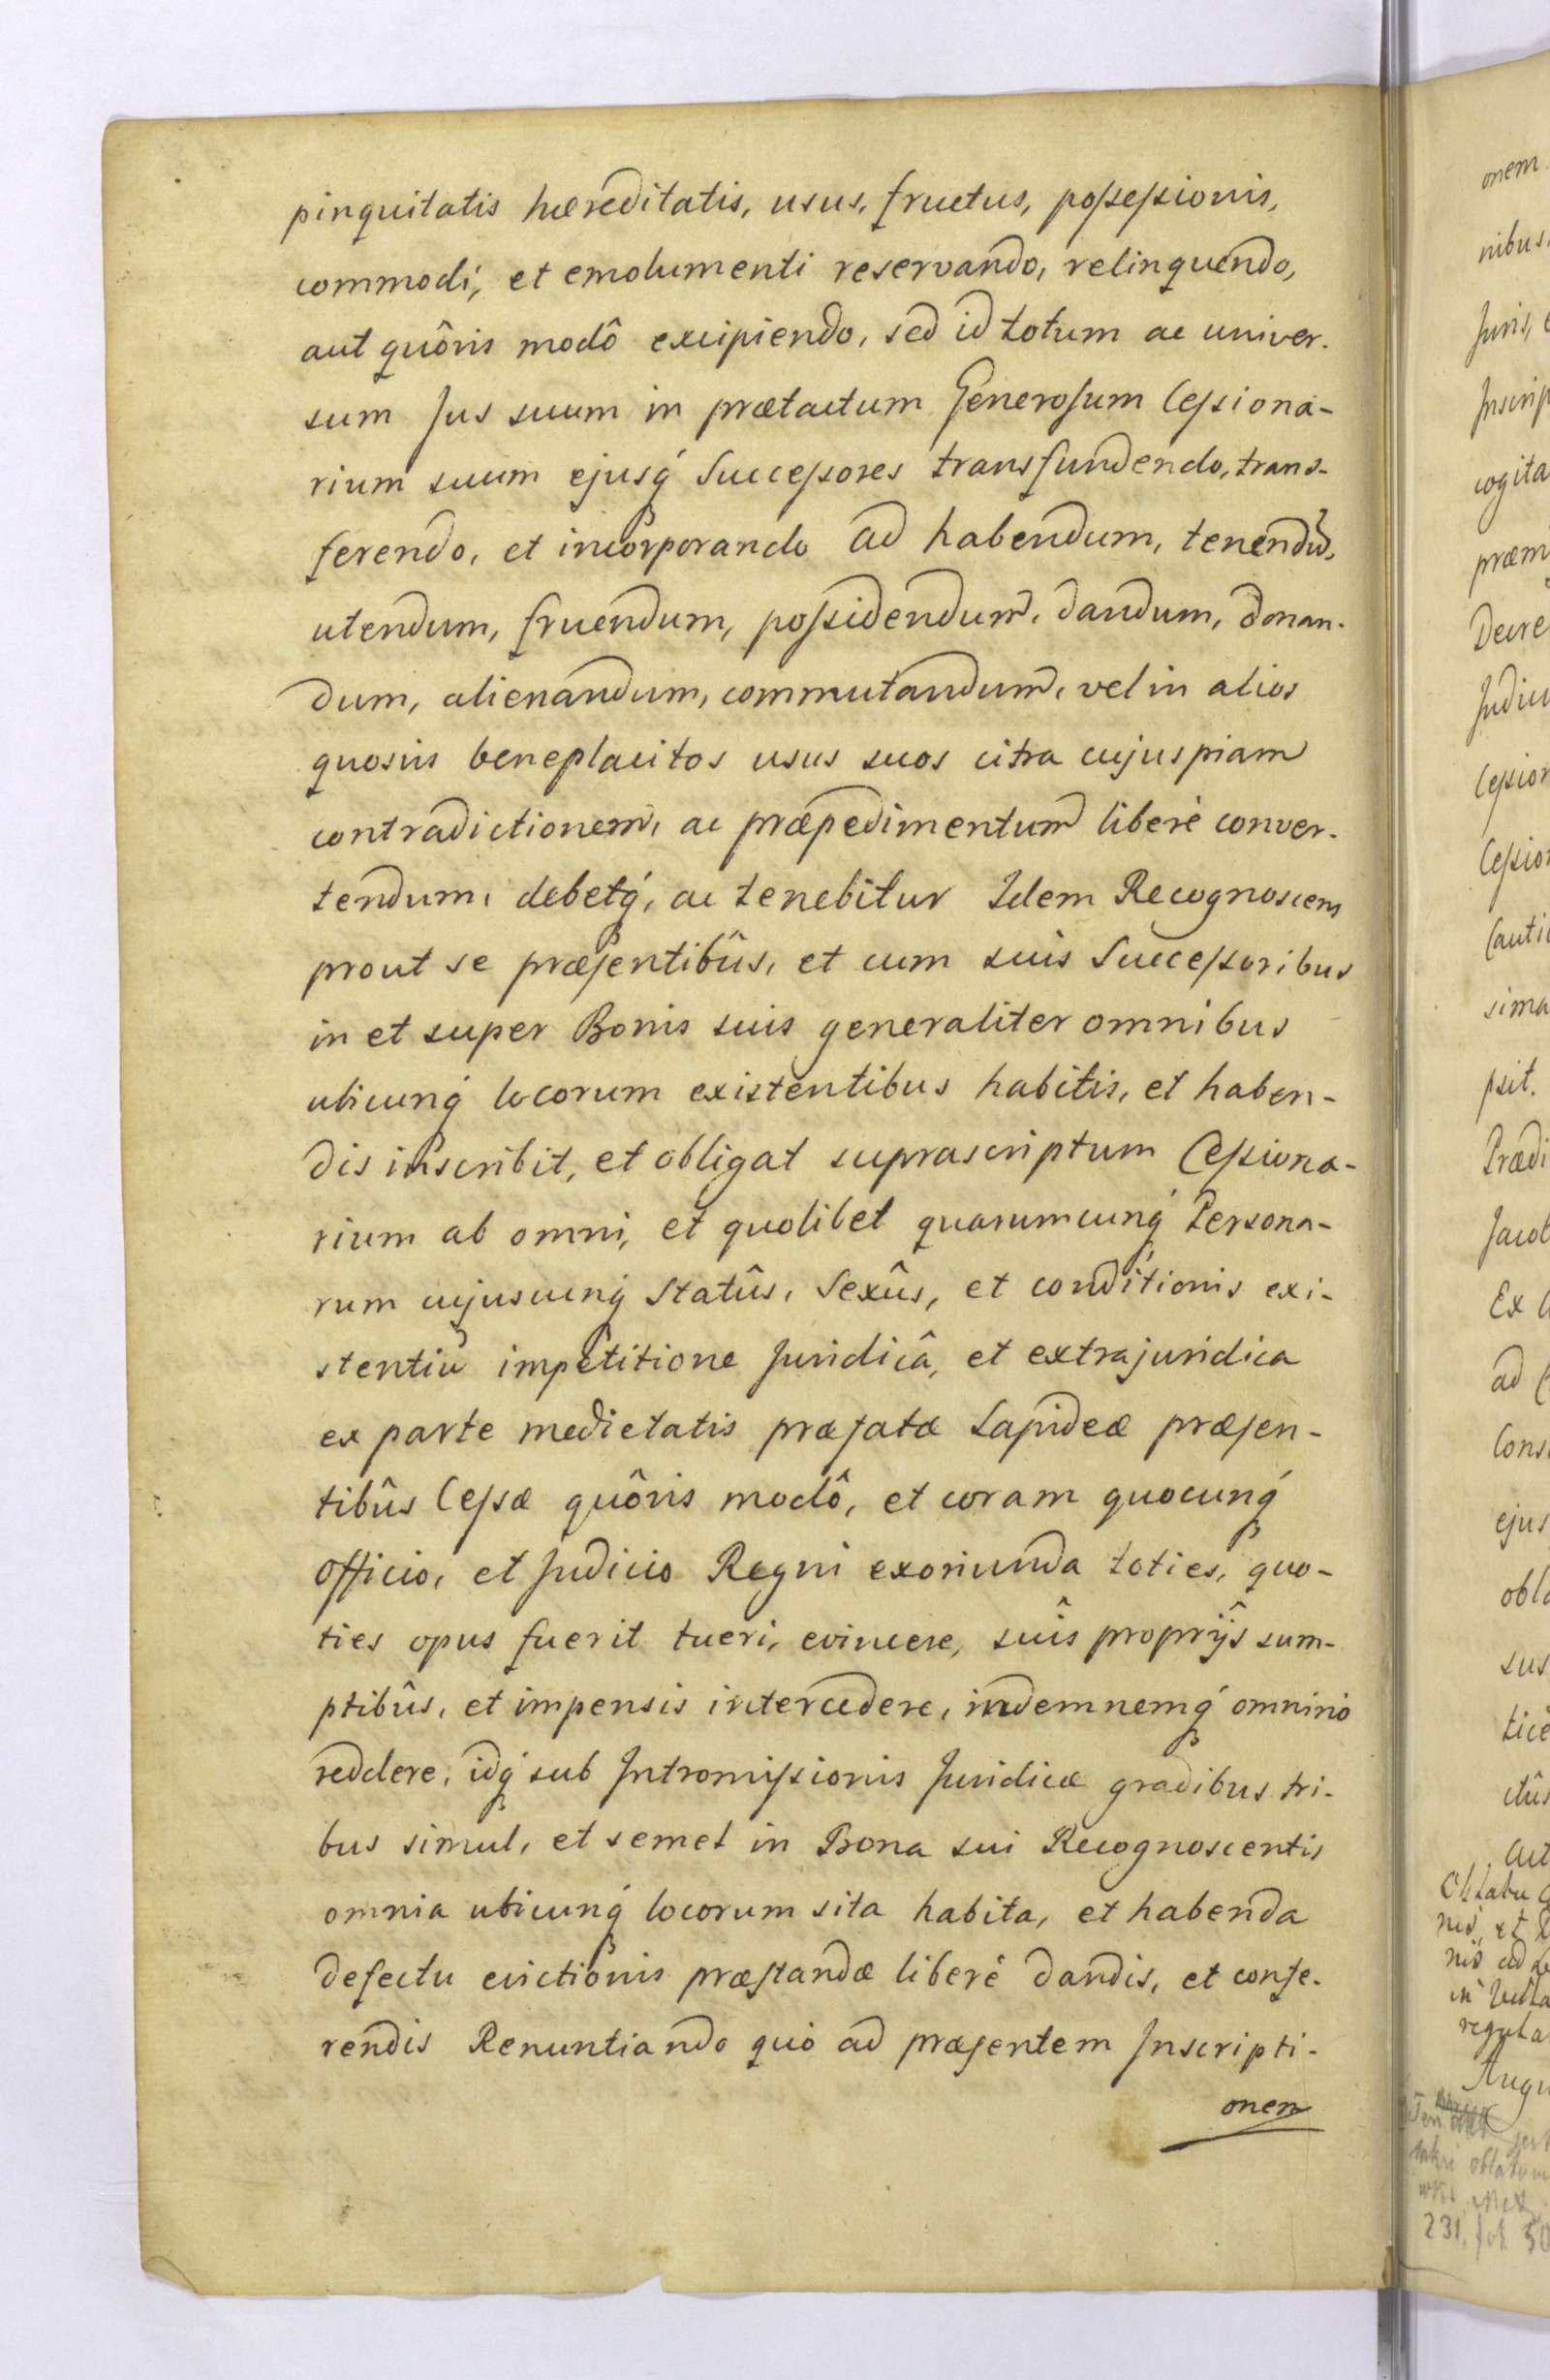 pinguitatis hæreditatis, usus, fructus, possessionis,
commodi, et emolumenti reservando, relinquendo,
aut quôvis modô excipiendo, sed id totum ac univer-
sum Jus suum in prætactum Generosum Cessiona-
rium suum ejusq́ Successores transfundendo, trans-
ferendo, et incorporando ad habendum, tenendũ,
utendum, fruendum, possidendum, dandum, donan-
dum, alienandum, commutandum, vel in alios
quosvis beneplacitos usus suos citra cujuspiam
contradictionem, ac præpedimentum liberè conver-
tendum, debetq́, ac tenebitur Idem Recognoscens
prout se præsentibûs, et cum suis Successoribus
in et super Bonis suis generaliter omnibus
ubicunq́ locorum existentibus habitis, et haben-
dis inscribit, et obligat suprascriptum Cessiona-
rium ab omni, et quolibet quarumcunq́ Persona-
rum cujuscunq́ Statûs, Sexûs, et conditionis exi-
stentiũ impetitione Juridicâ, et extrajuridica
ex parte medietatis præfatæ Lapideæ præsen-
tibûs Cessæ quôvis modô, et coram quocunq́
Officio, et Judicio Regni exoriunda toties, quo-
ties opus fuerit tueri, evincere, suîs proprijs sum-
ptibûs, et impensis intercedere, indemnemq́ omnino
reddere, idq́ sub Intromissionis Juridicæ gradibus tri-
bus simul, et semel in Bona sui Recognoscentis
omnia ubicunq́ locorum sita habita, et habenda
defectu evictionis præstandæ liberè dandis, et confe-
rendis Renuntiando quò ad præsentem Inscripti-
onem
onem
nibus
Juris,
Inscrip
cogita
præm
Decre
Judici
Cession
Cession
Cauti
sima
psit.
Prædi
Jacob
Ex
ad
Cons
ejus
obla
sus
ticè
ctûs
Oblatu
nis, et
nis ad
in
regula
Augu
oblatum
231, fol. 50